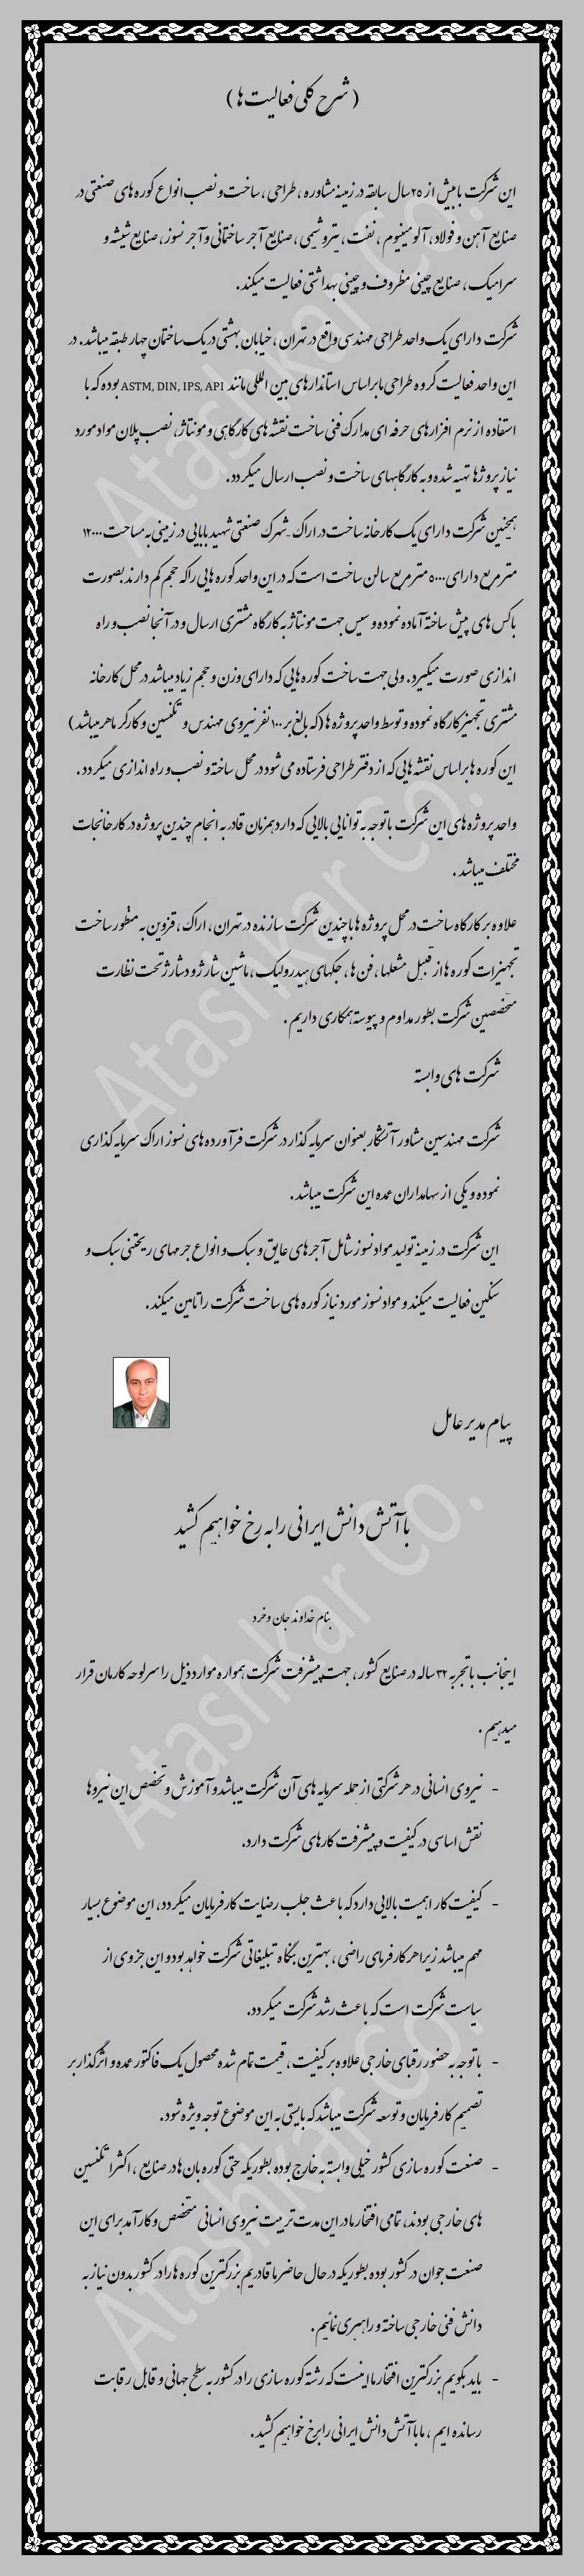 ( شرح کلی فعالیت ها )
این شرکت با بیش از ۲۵ سال سابقه در زمینه مشاوره ، طراحی ، ساخت و نصب انواع کوره های صنعتی در
صنایع آهن و فولاد ، آلومینیوم ، نفت ، پتروشیمی ، صنایع آجر ساختمانی و آجر نسوز ، صنایع شیشه و
سرامیک ، صنایع چینی مظروف و چینی بهداشتی فعالیت میکند .
شرکت دارای یک واحد طراحی مهندسی واقع در تهران ، خیابان بهشتی در یک ساختمان چهار طبقه میباشد . در
این واحد فعالیت گروه طراحی ما براساس استاندارهای بین المللی مانند ASTM, DIN, IPS, API بوده که با
استفاده از نرم افزارهای حرفه ای مدارک فنی ساخت نقشه های کارگاهی و مونتاژ ، نصب پلان مواد مورد
نیاز پروژها تهیه شده و به کارگاههای ساخت و نصب ارسال میگردد .
همچنین شرکت دارای یک کارخانه ساخت در اراک ـ شهرک صنعتی شهید بابایی در زمینی به مساحت ۱۲۰۰۰
متر مربع دارای ۵۰۰۰ متر مربع سالن ساخت است که در این واحد کوره هایی را که حجم کم دارند بصورت
باکس های پیش ساخته آماده نموده و سپس جهت مونتاژ به کارگاه مشتری ارسال و در آنجا نصب و راه
اندازی صورت میگیرد . ولی جهت ساخت کوره هایی که دارای وزن و حجم زیاد میباشد در محل کارخانه
مشتری تجهیز کارگاه نموده و توسط واحد پروژه ها (که بالغ بر ۱۰۰ نفر نیروی مهندس و تکنسین و کارگر ماهر میباشد )
این کوره ها براساس نقشه هایی که از دفتر طراحی فرستاده می شود در محل ساخته و نصب و راه اندازی میگردد .
واحد پروژه های این شرکت با توجه به توانایی بالایی که دارد همزمان قادر به انجام چندین پروژه در کارخانجات
مختلف میباشد .
علاوه بر کارگاه ساخت در محل پروژه ها با چندین شرکت سازنده در تهران ، اراک ، قزوین به منظور ساخت
تجهیزات کوره ها از قبیل مشعلها ، فن ها ، جکهای هیدرولیک ، ماشین شارژ و دشارژ تحت نظارت
متخصصین شرکت بطور مداوم و پیوسته همکاری داریم .
شرکت های وابسته
شرکت مهندسین مشاور آتشکار بعنوان سرمایه گذار در شرکت فرآورده های نسوز اراک سرمایه گذاری
نموده و یکی از سهامداران عمده این شرکت میباشد .
این شرکت در زمینه تولید مواد نسوز شامل آجرهای عایق و سبک و انواع جرمهای ریختنی سبک و
سنگین فعالیت میکند و مواد نسوز مورد نیاز کوره های ساخت شرکت را تامین میکند .
پیام مدیر عامل
با آتش دانش ایرانی را به رخ خواهیم کشید
بنام خداوند جان و خرد
اینجانب با تجربه ۳۲ ساله در صنایع کشور ، جهت پیشرفت شرکت همواره موارد ذیل را سرلوحه کارمان قرار
میدهیم .
- نیروی انسانی در هر شرکتی از جمله سرمایه های آن شرکت میباشد و آموزش و تخصص این نیروها
نقش اساسی در کیفیت و پیشرفت کارهای شرکت دارد .
- کیفیت کار اهمیت بالایی دارد که باعث جلب رضایت کارفرمایان میگردد ، این موضوع بسیار
مهم میباشد زیرا هر کارفرمای راضی ، بهترین بنگاه تبلیغاتی شرکت خواهد بود و این جزوی از
سیاست شرکت است که باعث رشد شرکت میگردد .
- با توجه به حضور رقبای خارجی علاوه بر کیفیت ، قیمت تمام شده محصول یک فاکتور عمده و اثرگذار بر
تصمیم کارفرمایان و توسعه شرکت میباشد که بایستی به این موضوع توجه ویژه شود .
- صنعت کوره سازی کشور خیلی وابسته به خارج بوده بطوریکه حتی کوره بان ها در صنایع ، اکثرا تکنسین
های خارجی بودند ، تمامی افتخار ما در این مدت تربیت نیروی انسانی متخصص و کارآمد برای این
صنعت جوان در کشور بوده بطوریکه در حال حاضر ما قادریم بزرگترین کوره ها را در کشور بدون نیاز به
دانش فنی خارجی ساخته و راهبری نمائیم .
- باید بگویم بزرگترین افتخار ما اینست که رشته کوره سازی را در کشور به سطح جهانی و قابل رقابت
رسانده ایم ، ما با آتش دانش ایرانی را برخ خواهیم کشید .
Atashkar Co.
Atashkar Co.
Atashkar Co.
Atashkar Co.